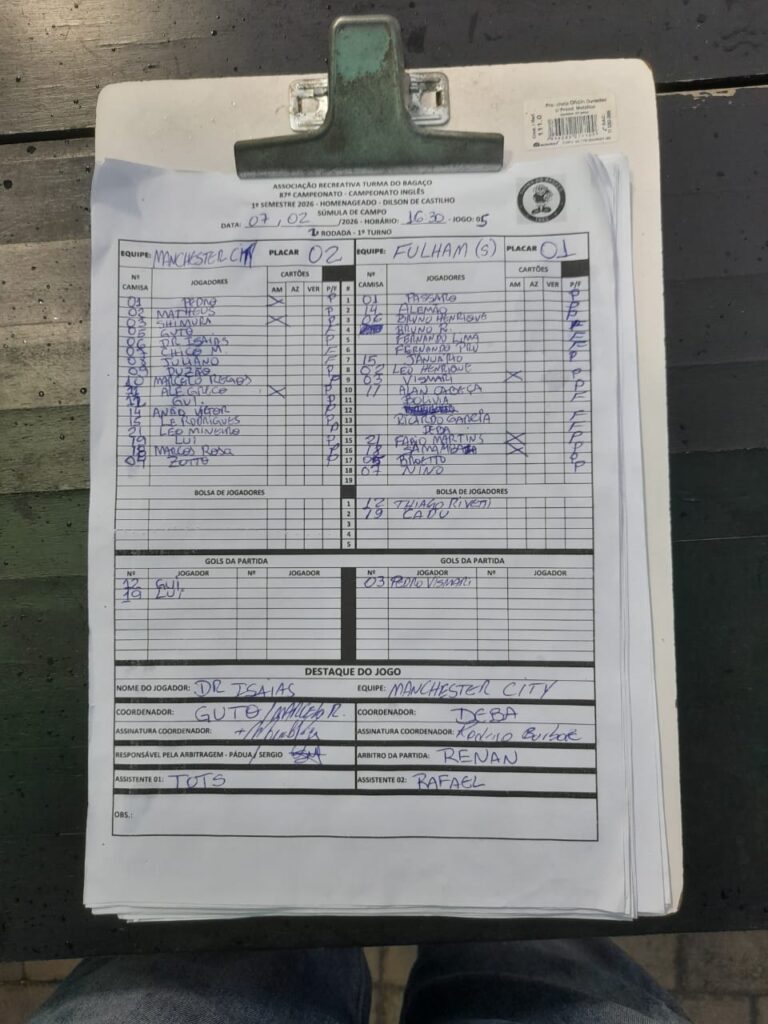 ASSOCIAÇÃO RECREATIVA TURMA DO BAGAÇO
87º CAMPEONATO - CAMPEONATO INGLÊS
1º SEMESTRE 2026 - HOMENAGEADO - DILSON DE CASTILHO
SÚMULA DE CAMPO
DATA: 07, 02 /2026 - HORÁRIO: 16 30 - JOGO: 05
2 RODADA - 1º TURNO
EQUIPE: MANCHESTER CITY PLACAR 02 EQUIPE: FULHAM (S) PLACAR 01
Nº CAMISA JOGADORES CARTÕES AM AZ VER P/F # Nº CAMISA JOGADORES CARTÕES AM AZ VER P/F
01 PEDRO X P 1 01 PASSARO P
02 MATHEUS P 2 14 ALEMÃO P
03 SHIMURA X P 3 06 BRUNO HENRIQUE
05 GUTO F 4 BRUNO R. F
06 DR ISAIAS P 5 FERNANDO LIMA F
CHICO M. F 6 FERNANDO F
JULIANO F 7 15 JANUÁRIO P
09 DUZÃO P 8 02 LEO HENRIQUE
10 MARCELO P 9 03 VISMARI X P
11 ALE GRECO X P 10 17 ALAN CABEÇA P
12 GUI P 11 BOLIVIA F
14 VITOR P 12
15 LE RODRIGUES P 13 RICARDO GARCIA F
21 LEO MINEIRO P 14 DEBA F
19 LUI P 15 21 FABIO MARTINS X P
18 MARCOS ROSA P 16 18 X P
04 ZOTTO P 17 P
18 07 NINO P
19
BOLSA DE JOGADORES BOLSA DE JOGADORES
1 12 THIAGO RIVETTI
2 19 CADU
3
4
5
GOLS DA PARTIDA GOLS DA PARTIDA
Nº JOGADOR Nº JOGADOR Nº JOGADOR Nº JOGADOR
12 GUI 03 PEDRO VISMARI
19 LUI
DESTAQUE DO JOGO
NOME DO JOGADOR: DR ISAIAS EQUIPE: MANCHESTER CITY
COORDENADOR: GUTO / MARCELO R. COORDENADOR: DEBA
ASSINATURA COORDENADOR: ASSINATURA COORDENADOR:
RESPONSÁVEL PELA ARBITRAGEM - PÁDUA/ SERGIO ARBITRO DA PARTIDA: RENAN
ASSISTENTE 01: TOTS ASSISTENTE 02: RAFAEL
OBS.:
111.0